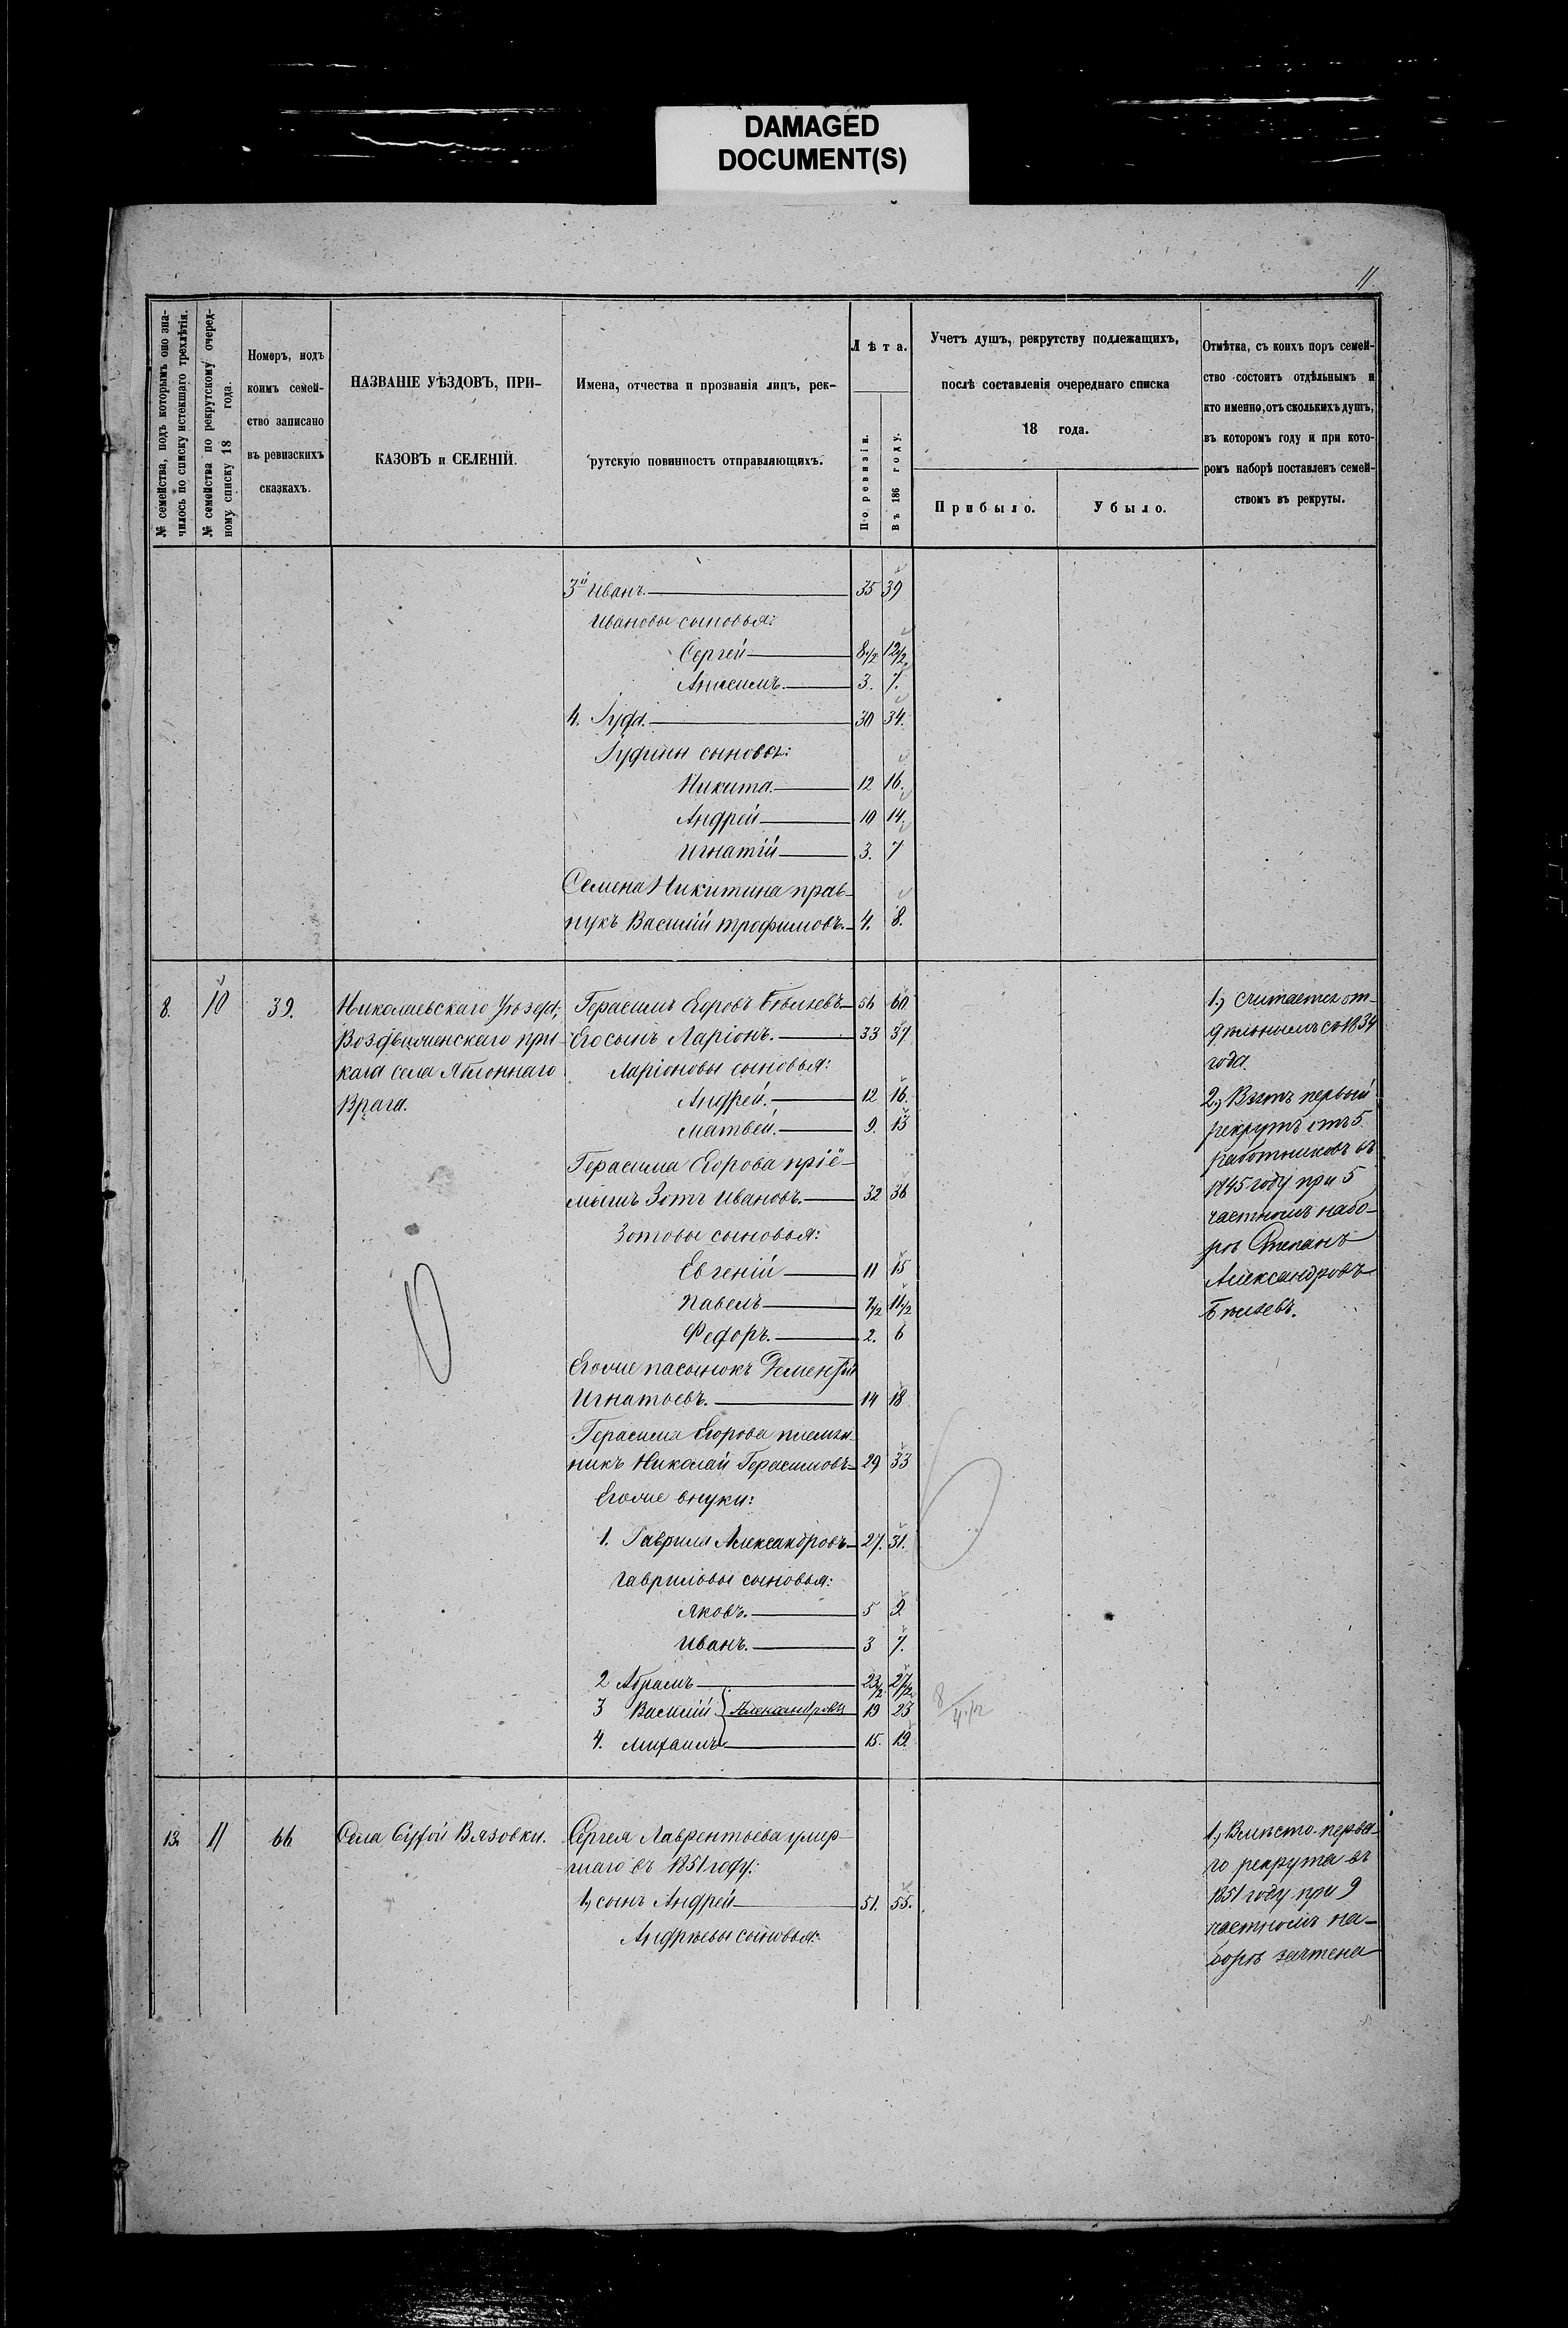 DAMAGED
DOCUMENT(S)
11
№ семейства, подъ которымъ оно зна-
чилось по списку истекшаго трехлѣтія.
№ семейства по рекрутскому очеред-
ному списку 18 года.
Номеръ, подъ
коимъ семей-
ство записано
въ ревизскихъ
сказкахъ.
НАЗВАНІЕ УѢЗДОВЪ, ПРИ-
КАЗОВЪ и СЕЛЕНІЙ.
Имена, отчества и прозванія лицъ, рек-
рутскую повинность отправляющихъ.
Лѣта.
По ревизіи.
Въ 186 году.
Учетъ душъ, рекрутству подлежащихъ,
послѣ составленія очереднаго списка
18 года.
Прибыло.
Убыло.
Отмѣтка, съ коихъ поръ семей-
ство состоитъ отдѣльнымъ и
кто именно, отъ сколькихъ душъ,
въ которомъ году и при кото-
ромъ наборѣ поставленъ семей-
ствомъ въ рекруты.
3й Иванъ 35 39
Ивановы сыновья:
Сергей 8 1/2 12 1/2
Анисимъ. 3. 7.
4. Гуфа. 30 34.
Гуфины сыновья:
Никита. 12 16.
Андрей 10 14.
Игнатій 3. 7
Семена Никитина прав-
нукъ Василій Трофимовъ. 4. 8.
8. 10 39. Николаевскаго Уѣзда,
Воздвиженскаго при-
каза села Яблоннаго
Врага.
Герасимъ Егоровъ Бѣляевъ 56 60
Его сынъ Ларіонъ. 33 37
Ларіоновы сыновья:
Андрей. 12 16.
Матвей. 9. 13
Герасима Егорова пріё-
мышъ Зотъ Ивановъ. 32 36
Зотовы сыновья:
Евгеній 11 15
Павелъ 7 1/2 11 1/2
Федоръ. 2. 6
Егоже пасынокъ Дементій
Игнатьевъ. 14 18
Герасима Егорова племян-
никъ Николай Герасимовъ 29 33
Егоже внуки:
1. Гаврила Александровъ 27. 31.
Гавриловы сыновья:
Яковъ. 5 9.
Иванъ. 3 7.
2 Абрамъ 23 1/2 27 1/2
3 Василій Александровы 19 23
4. Михаилъ 15. 19.
8/4 1/2
1.) Считается от-
дѣльнымъ съ 1834
года.
2.) Взятъ первый
рекрутъ отъ 5
работниковъ въ
1845 году при 5
частномъ набо-
рѣ Степанъ
Александровъ
Бѣляевъ.
13. 11 66 Села Сухой Вязовки.
Сергея Лаврентьева умер-
шаго въ 1851 году:
1, сынъ Андрей 51. 55.
Андреевы сыновья:
1.) Вмѣсто перва-
го рекрута въ
1851 году при 9
частномъ на-
борѣ зачтена